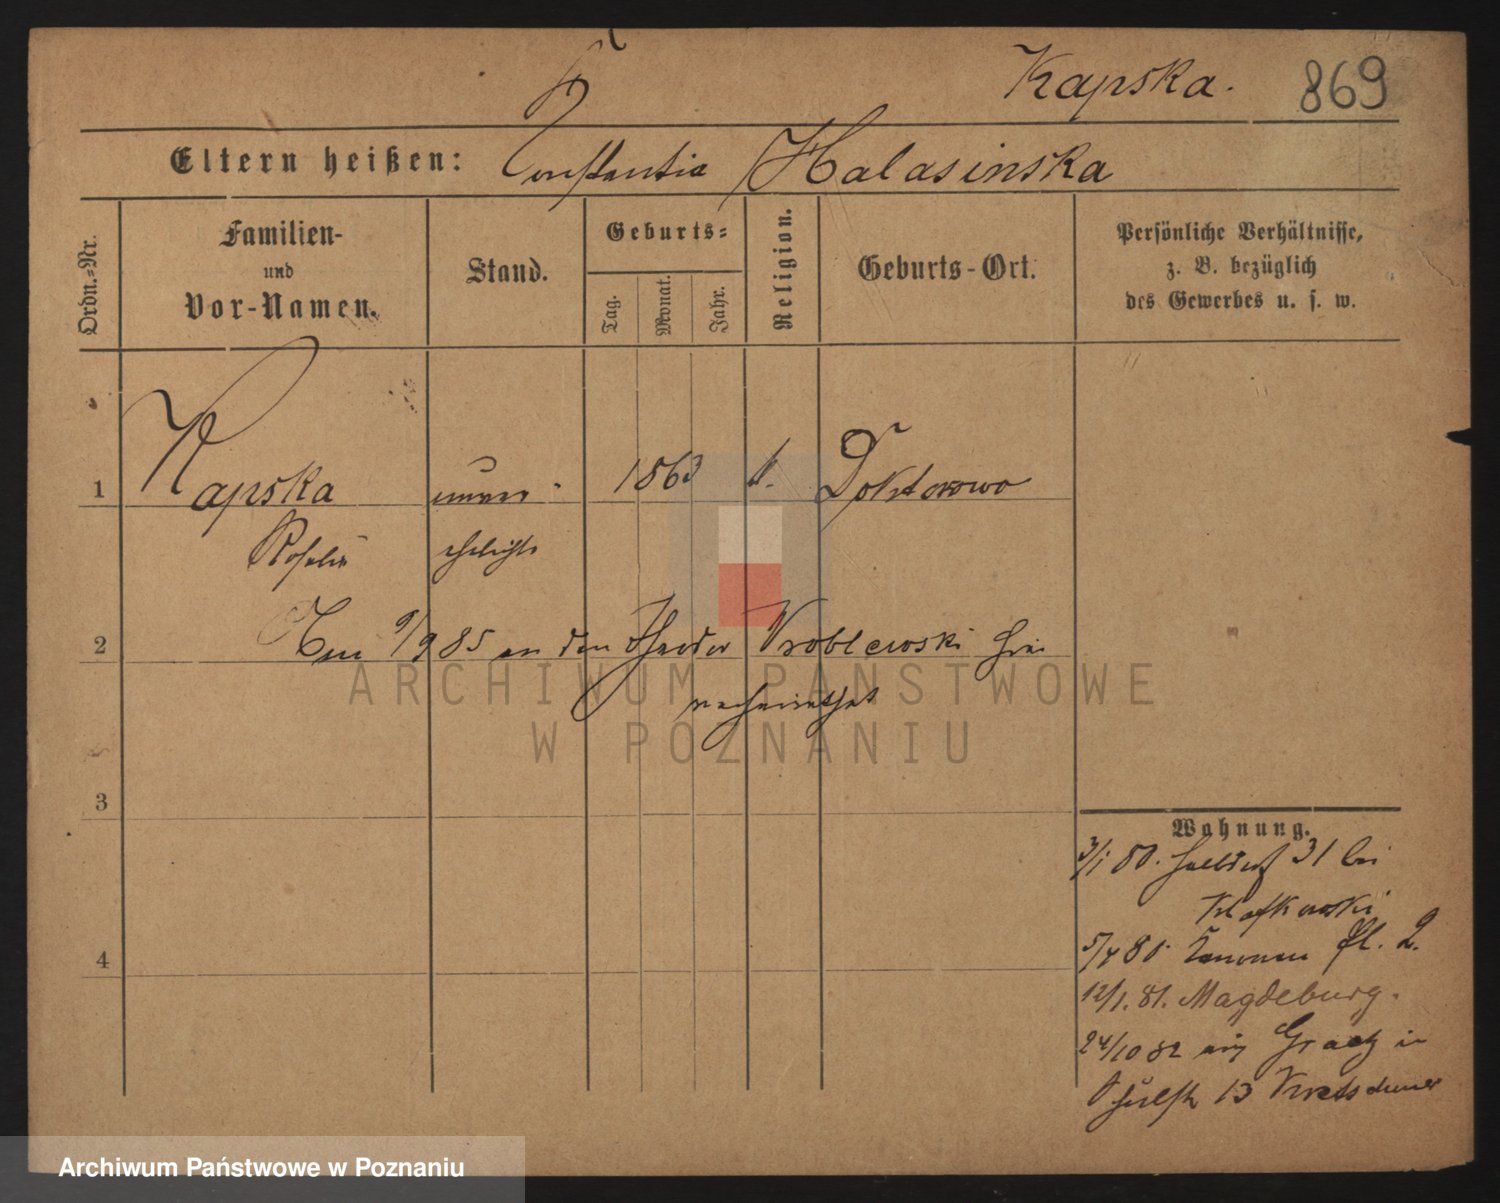 Kapska. 869
Eltern heißen: Constantia Halasinska
Ordn.=Nr.
Familien-
und
Vor-Namen.
Stand.
Geburts=
Tag.
Monat.
Jahr.
Religion.
Geburts-Ort.
Persönliche Verhältnisse,
z. B. bezüglich
des Gewerbes u. s. w.
1 Kapska unver 1863 k. Doktorowo
Rosalie ehelicht
2 Am 9/9 85 an den Theodor Wroblewski hier
verheirathet
3
4
Wohnung.
3/1 80. Halbdorfst 31 bei
5/4 80. Kanonen Pl. 2.
12/1. 81. Magdeburg.
24/10 82 aus Graetz in
Schulstr 13 Kretschmer
ARCHIWUM PAŃSTWOWE
W POZNANIU
Archiwum Państwowe w Poznaniu